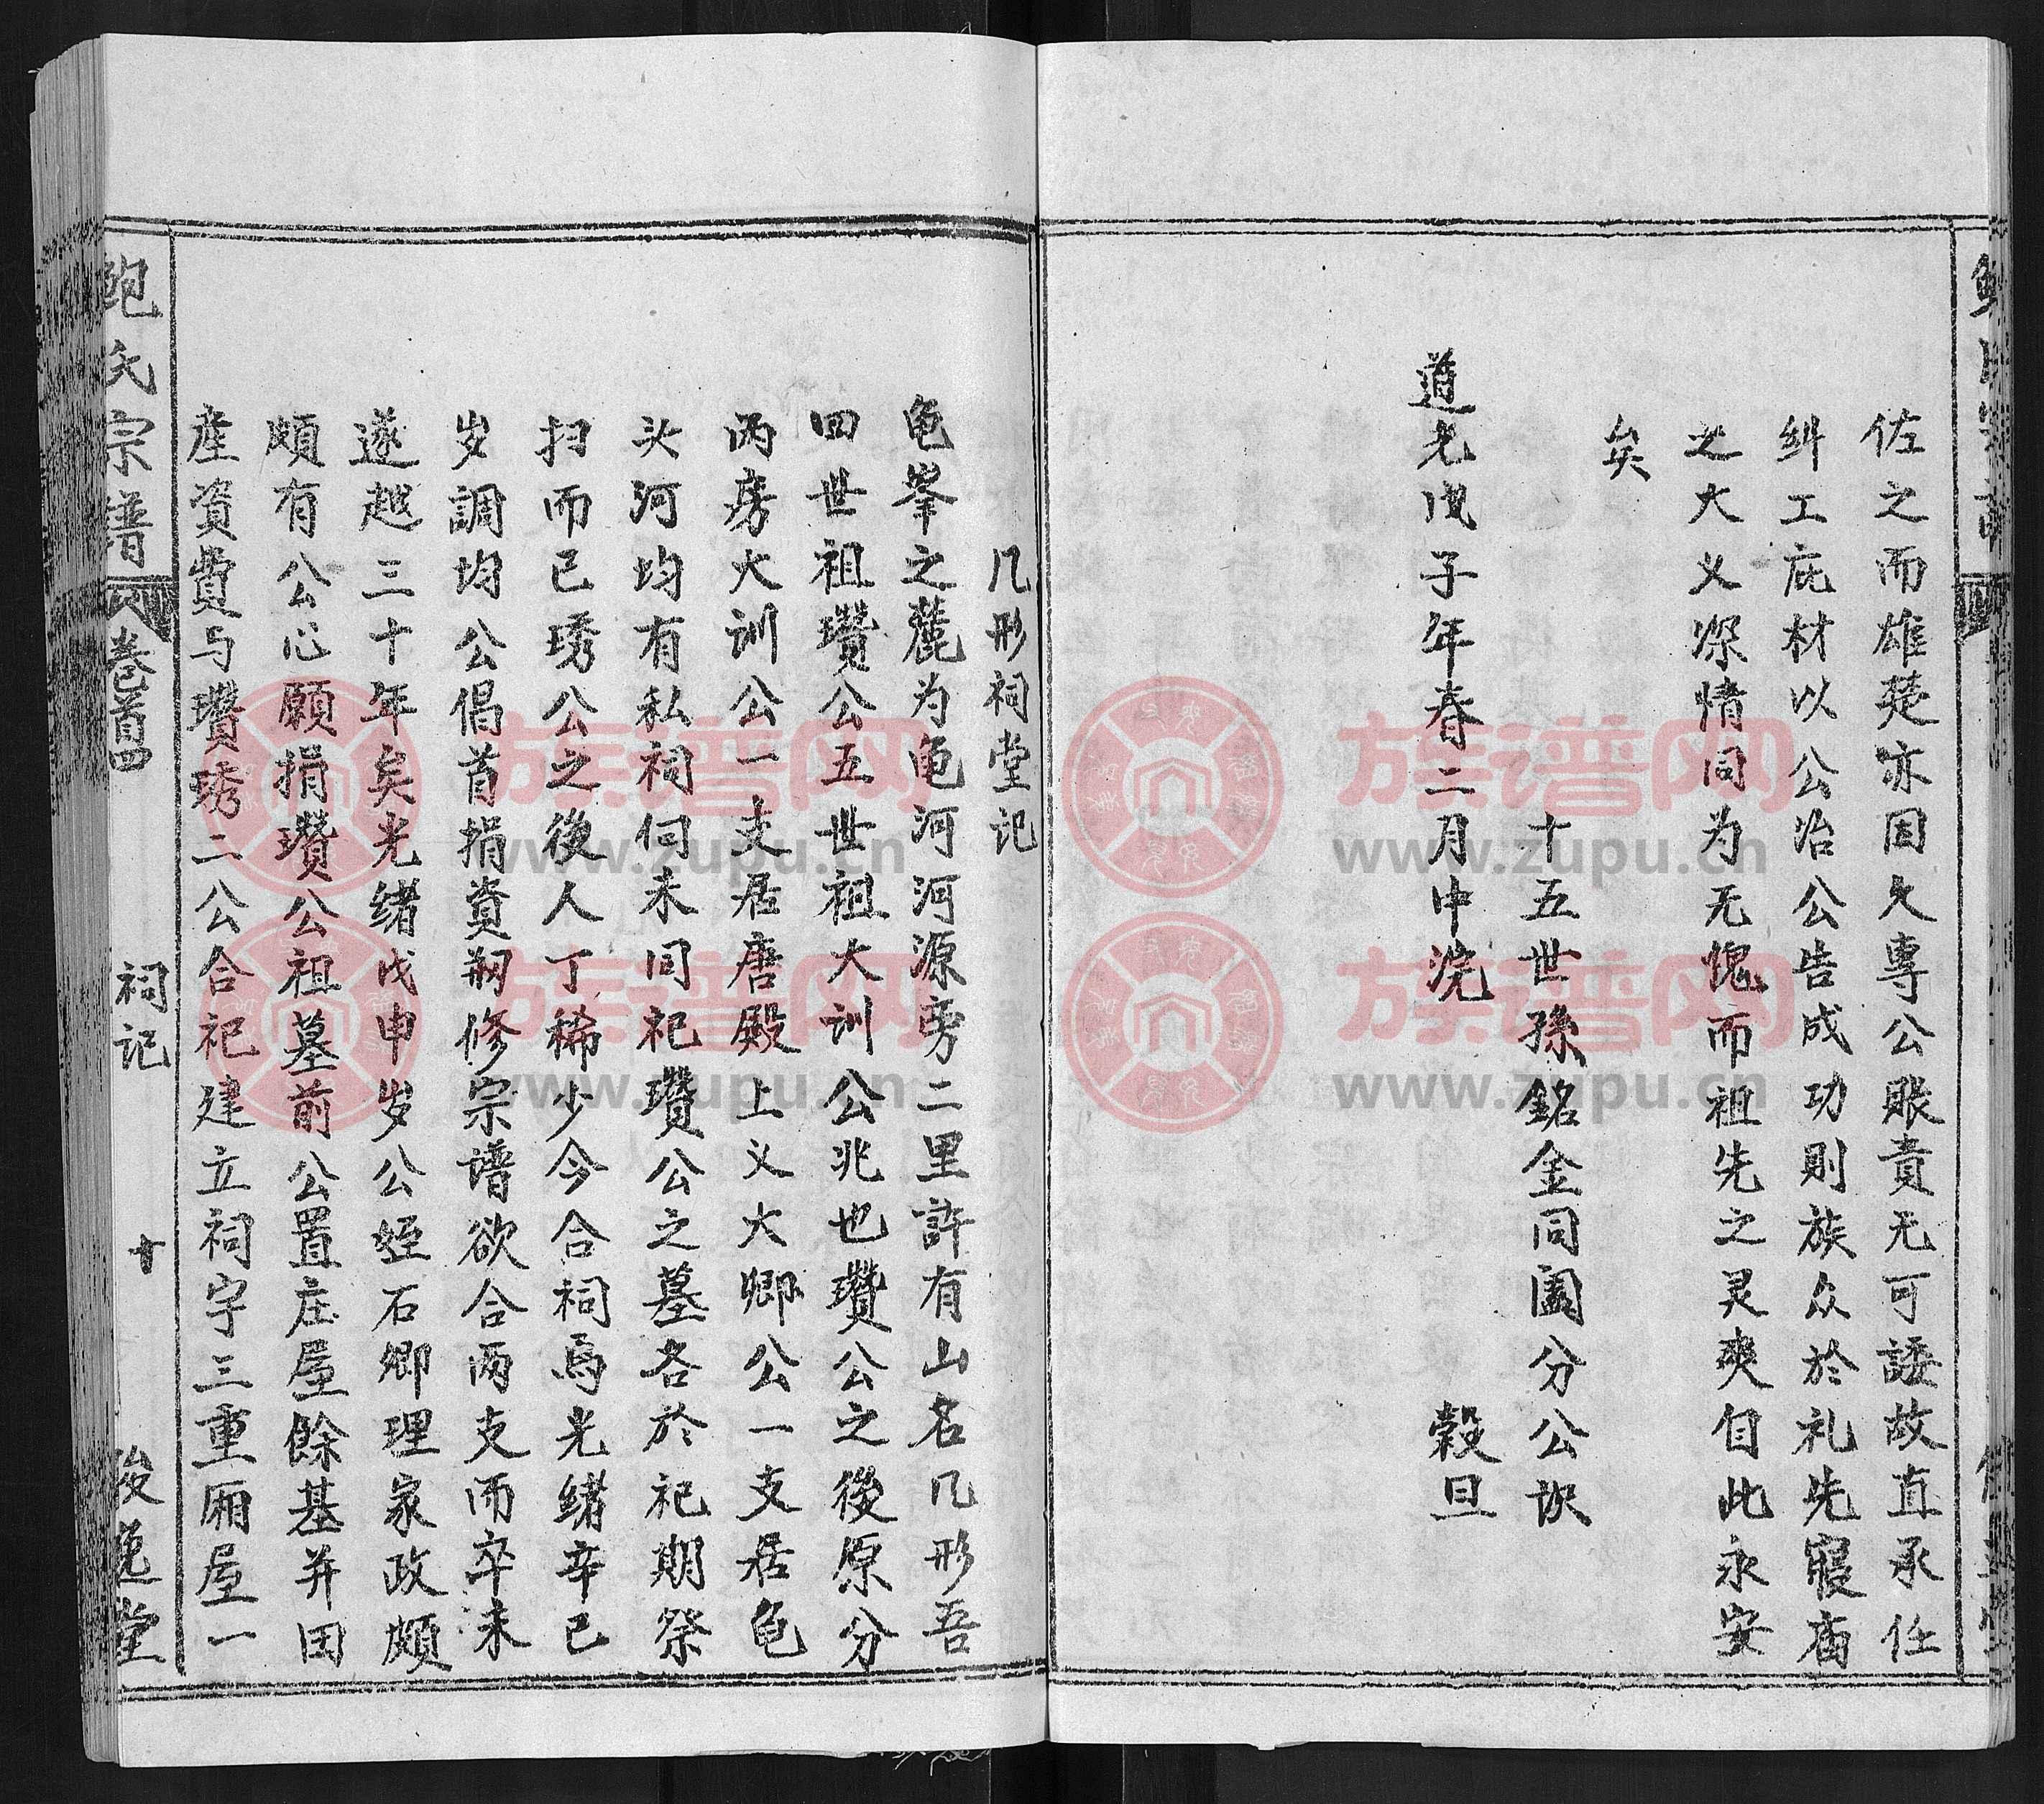 佐之而雄楚亦因久專公賬責无可諉故直承任
纠工庇材以公治公告成功則族众於礼先寢庙
之大义深情同为无愧而祖先之灵爽自此永安
矣
十五世孫銘金同阖分公识
道光戊子年春二月中浣 穀旦
几形祠堂记
龟峯之麓为龟河河源旁二里許有山名几形吾
四世祖瓚公五世祖大训公兆也瓚公之後原分
两房大训公一支居唐殿上义大卿公一支居龟
头河均有私祠但未同祀瓚公之墓各於祀期祭
扫而已琇公之後人丁稀少今合祠焉光緒辛巳
岁調均公倡首捐資剏修宗谱欲合两支而卒未
遂越三十年矣光緒戊申岁公姪石卿理家政頗
頗有公心願捐瓚公祖墓前公置庄屋餘基并田
産資費与瓚琇二公合祀建立祠宇三重厢屋一
鲍氏宗谱 卷首四 祠记 十 後逸堂
族谱网
www.zupu.cn
族谱网
www.zupu.cn
族谱网
www.zupu.cn
族谱网
www.zupu.cn